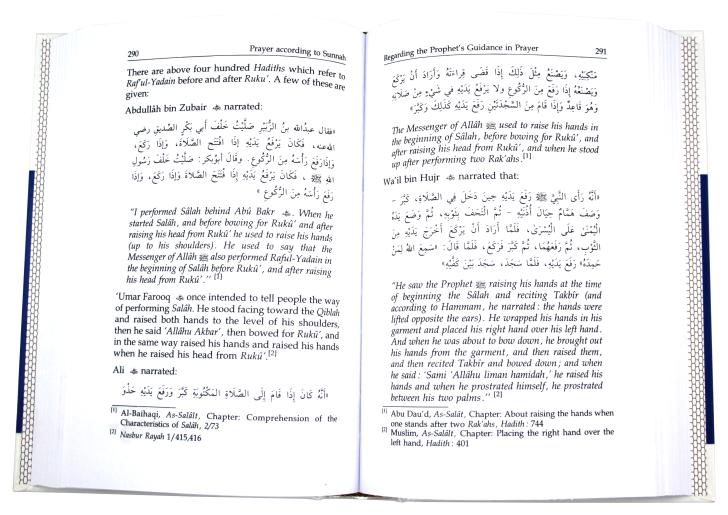 290
Prayer according to Sunnah
There are above four hundred Hadiths which refer to
Raf'ul-Yadain before and after Ruku'. A few of these are
given:
Abdullâh bin Zubair ﷺ narrated:
«فقال عبدالله بن الزُّبَيْرِ صَلَّيْتُ خَلْفَ أَبِي بَكْرٍ الصِّدِيقِ رضي
الله عنه، فَكَانَ يَرْفَعُ يَدَيْهِ إِذَا افْتَتَحَ الصَّلَاةَ، وَإِذَا رَكَعَ،
وَإِذَا رَفَعَ رَأْسَهُ مِنَ الرُّكُوعِ. وقَالَ أبوبكر: صَلَّيْتُ خَلْفَ رَسُولِ
اللهِ ﷺ ، فَكَانَ يَرْفَعُ يَدَيْهِ إِذَا افْتَتَحَ الصَّلَاةَ وَإِذَا رَكَعَ، وَإِذَا
رَفَعَ رَأْسَهُ مِنَ الرُّكُوعِ »
"I performed Sâlah behind Abû Bakr . When he
started Salâh, and before bowing for Rukû' and after
raising his head from Rukû' he used to raise his hands
(up to his shoulders). He used to say that the
Messenger of Allâh ﷺ also performed Raful-Yadain in
the beginning of Salâh before Rukû', and after raising
his head from Rukû'." [1]
'Umar Farooq once intended to tell people the way
of performing Salâh. He stood facing toward the Qiblah
and raised both hands to the level of his shoulders,
then he said 'Allâhu Akbar', then bowed for Rukû', and
in the same way raised his hands and raised his hands
when he raised his head from Rukû'.[2]
Ali narrated:
«أَنَّهُ كَانَ إِذَا قَامَ إِلَى الصَّلَاةِ المَكْتُوبَةِ كَبَّرَ وَرَفَعَ يَدَيْهِ حَذْوَ
[1] Al-Baihaqi, As-Salâlt, Chapter: Comprehension of the
Characteristics of Salâh, 2/73
[2] Nasbur Rayah 1/415,416
Regarding the Prophet's Guidance in Prayer
291
مَنْكِبَيْهِ، وَيَصْنَعُ مِثْلَ ذَلِكَ إِذَا قَضَى قِرَاءَتَهُ وَأَرَادَ أَنْ يَرْكَعَ
وَيَصْنَعُهُ إِذَا رَفَعَ مِنَ الرُّكُوعِ وَلا يَرْفَعُ يَدَيْهِ فِي شَيْءٍ مِنْ صَلَاتِهِ
وَهُوَ قَاعِدٌ وَإِذَا قَامَ مِنَ السَّجْدَتَيْنِ رَفَعَ يَدَيْهِ كَذَلِكَ وَكَبَّرَ»
The Messenger of Allâh ﷺ used to raise his hands in
the beginning of Salâh, before bowing for Rukû', and
after raising his head from Rukû', and when he stood
up after performing two Rak'ahs.[1]
Wa'il bin Hujr narrated that:
«أَنَّهُ رَأَى النَّبِيَّ ﷺ رَفَعَ يَدَيْهِ حِينَ دَخَلَ فِي الصَّلَاةِ، كَبَّرَ -
وَصَفَ هَمَّامٌ حِيَالَ أُذُنَيْهِ - ثُمَّ الْتَحَفَ بِثَوْبِهِ، ثُمَّ وَضَعَ يَدَهُ
الْيُمْنَى عَلَى الْيُسْرَى، فَلَمَّا أَرَادَ أَنْ يَرْكَعَ أَخْرَجَ يَدَيْهِ مِنَ
الثَّوْبِ، ثُمَّ رَفَعَهُمَا، ثُمَّ كَبَّرَ فَرَكَعَ، فَلَمَّا قَالَ: «سَمِعَ اللهُ لِمَنْ
حَمِدَهُ» رَفَعَ يَدَيْهِ، فَلَمَّا سَجَدَ، سَجَدَ بَيْنَ كَفَّيْهِ»
"He saw the Prophet ﷺ raising his hands at the time
of beginning the Sâlah and reciting Takbîr (and
according to Hammam, he narrated : the hands were
lifted opposite the ears). He wrapped his hands in his
garment and placed his right hand over his left hand.
And when he was about to bow down, he brought out
his hands from the garment, and then raised them,
and then recited Takbîr and bowed down; and when
he said : 'Sami 'Allâhu liman hamidah,' he raised his
hands and when he prostrated himself, he prostrated
between his two palms." [2]
[1] Abu Dau'd, As-Salât, Chapter: About raising the hands when
one stands after two Rak'ahs, Hadith : 744
[2] Muslim, As-Salât, Chapter: Placing the right hand over the
left hand, Hadith : 401